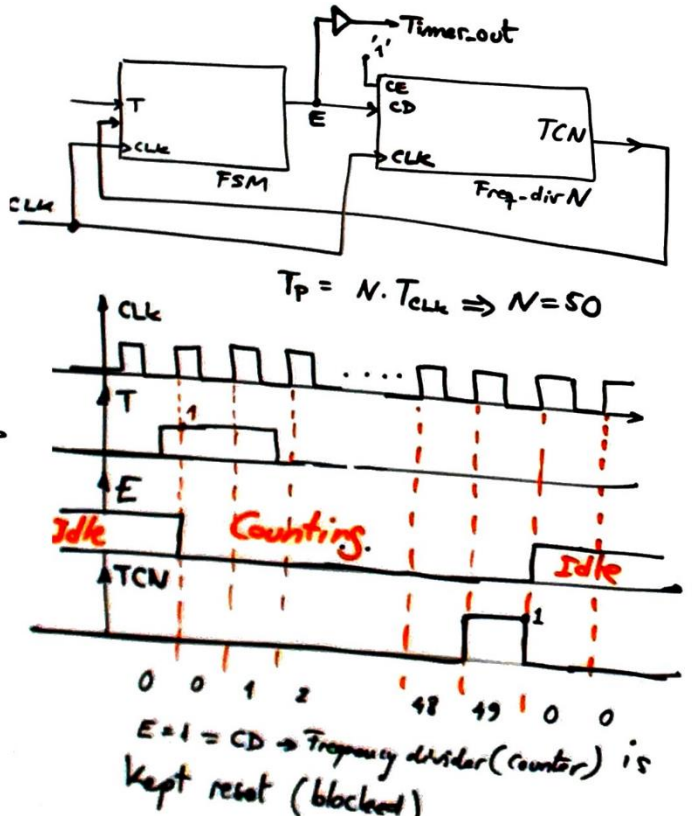 Timer_out
'1'
T
CLK
FSM
E
CE
CD
CLK
TCN
Freq_div N
CLK
Tp = N. TCLK ⇒ N=50
CLK
....
T
1
E
Idle
Counting.
Idle
TCN
1
0 0 1 2 48 49 0 0
E=1=CD → Frequency divider (counter) is
Kept reset (blocked)